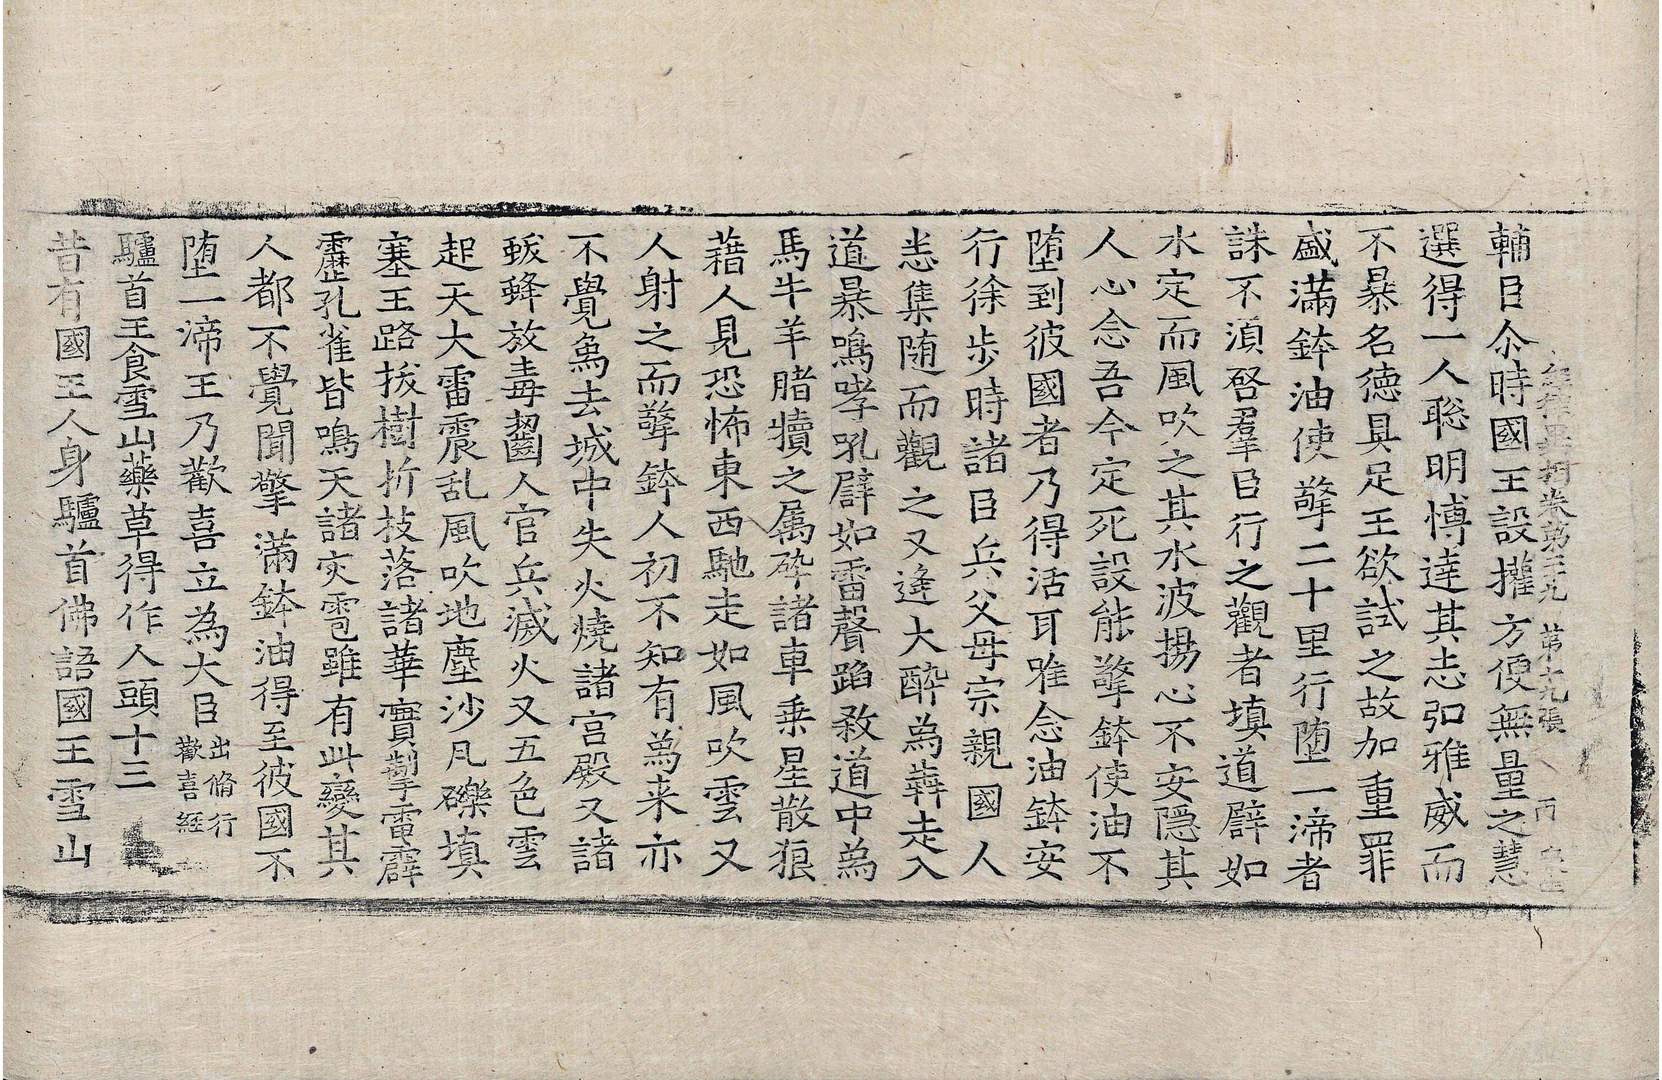 經律異相卷第二九　第十九張　丙
輔臣尒時國王設權方便無量之慧
選得一人聦明愽達其志弘雅威而
不暴名德具足王欲試之故加重罪
盛滿鉢油使擎二十里行堕一渧者
誅不湏啓羣臣行之觀者填道譬如
水定而風吹之其水波揚心不安隱其
人心念吾今定死設能擎鉢使油不
堕到彼國者乃得活耳唯念油鉢安
行徐步時諸臣兵父母宗親國人
悉集随而觀之又逢大醉為犇走入
道暴鳴哮吼譬如雷聲蹈敎道中為
馬牛羊賭犢之属碎諸車乗星散狼
藉人見恐怖東西馳走如風吹雲又
人射之而擎鉢人初不知有為来亦
不覺為去城中失火燒諸宫殿又諸
蚖蜂放毒齧人官兵滅火又五色雲
起天大雷震乱風吹地塵沙凡礫填
塞王路拔樹折技落諸華實掣雷霹
靂孔雀皆鳴天諸灾雹雖有此變其
人都不覺聞擎滿鉢油得至彼國不
堕一渧王乃歡喜立為大臣出脩行歡喜經
驢首王食雪山藥草得作人頭十三
昔有國王人身驢首佛語國王雪山